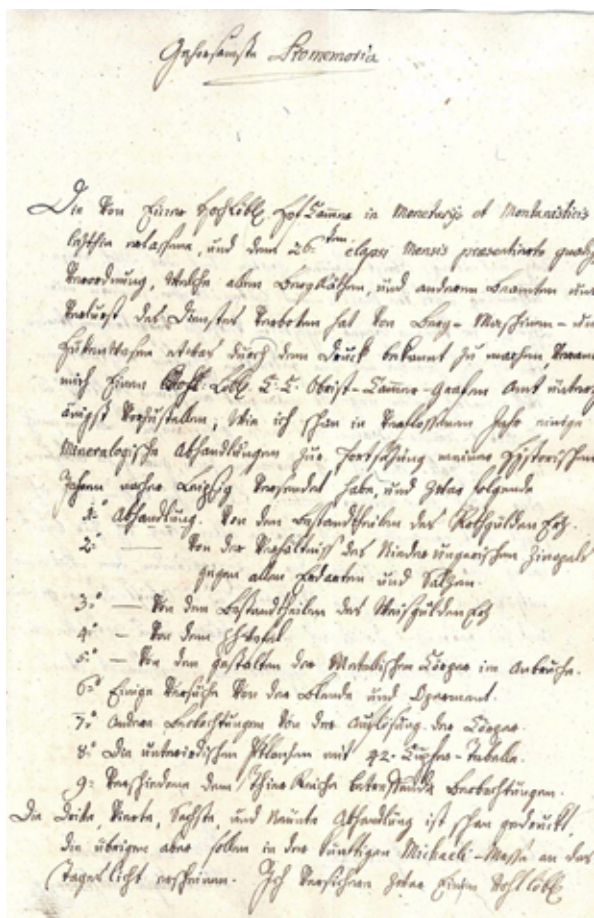 Gehorsamste Promemoria
Die von Einer Hochlöbl. Hof Cammer in Monetariis et Montanisticis
letzthin erlassene, und dem 26.ten elapsi Mensis praesentirte
Verordnung, welche allen Bergräthen, und anderen Beamten
Verlurst des Dienstes verboten hat von Berg- Maschinen-
Hüttenwesen etwas durch dem Druck bekannt zu machen,
mich Einem Löbl. K: K: Obrist-Cammer-Grafen Amt
vorzustellen; wie ich schon in verflossenen Jahr einige
Mineralogische Abhandlungen zur Fortsetzung meiner Hystorischen
Jahren nacher Leipzig versendet habe, und zwar folgende
1.o Abhandlung. Von dem Bestandtheilen des Rothgülden Erz.
2.o — Von der Verhältniss des Nieder ungarischen Zinopels
gegen allen Erdarten und Salzen.
3.o — Von dem Bestandtheilen des Weisgülden Erz
4.o — Von dem
5.o — Von dem gestalten der Metalischen Cörper im Anbruche.
6.o Einige Versuche von der Blende und Operment.
7.o Andere Beobachtungen von der Auflösung der Cörper.
8.o Die unterirdischen mit 42. Cupfer-Tabelle.
9.o Verschiedene dem Thier Reiche betreffende Beobachtungen.
Die Dritte, Vierte, Sechste, und Neünte Abhandlung ist schon gedruckt,
die übrigen aber sollen in der künftigen Michaeli-Messe an das
Tageslicht erscheinen. Ich versichere zwar Einem Wohl löbl